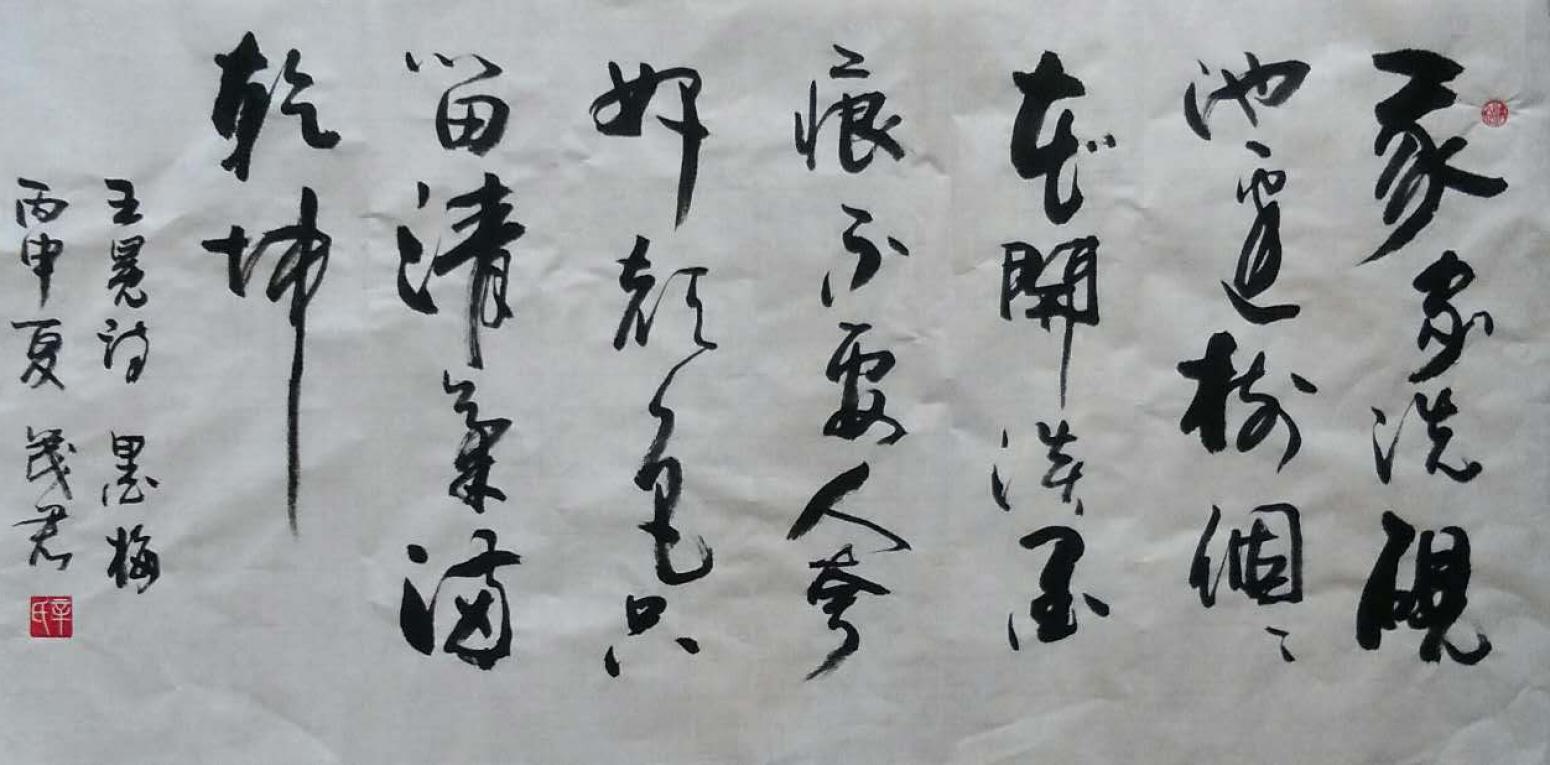 我家洗硯
池邊樹個々
花開淡墨
痕不要人夸
好顏色只
留清氣滿
乾坤
王冕詩 墨梅
丙申夏 茂君
辛氏